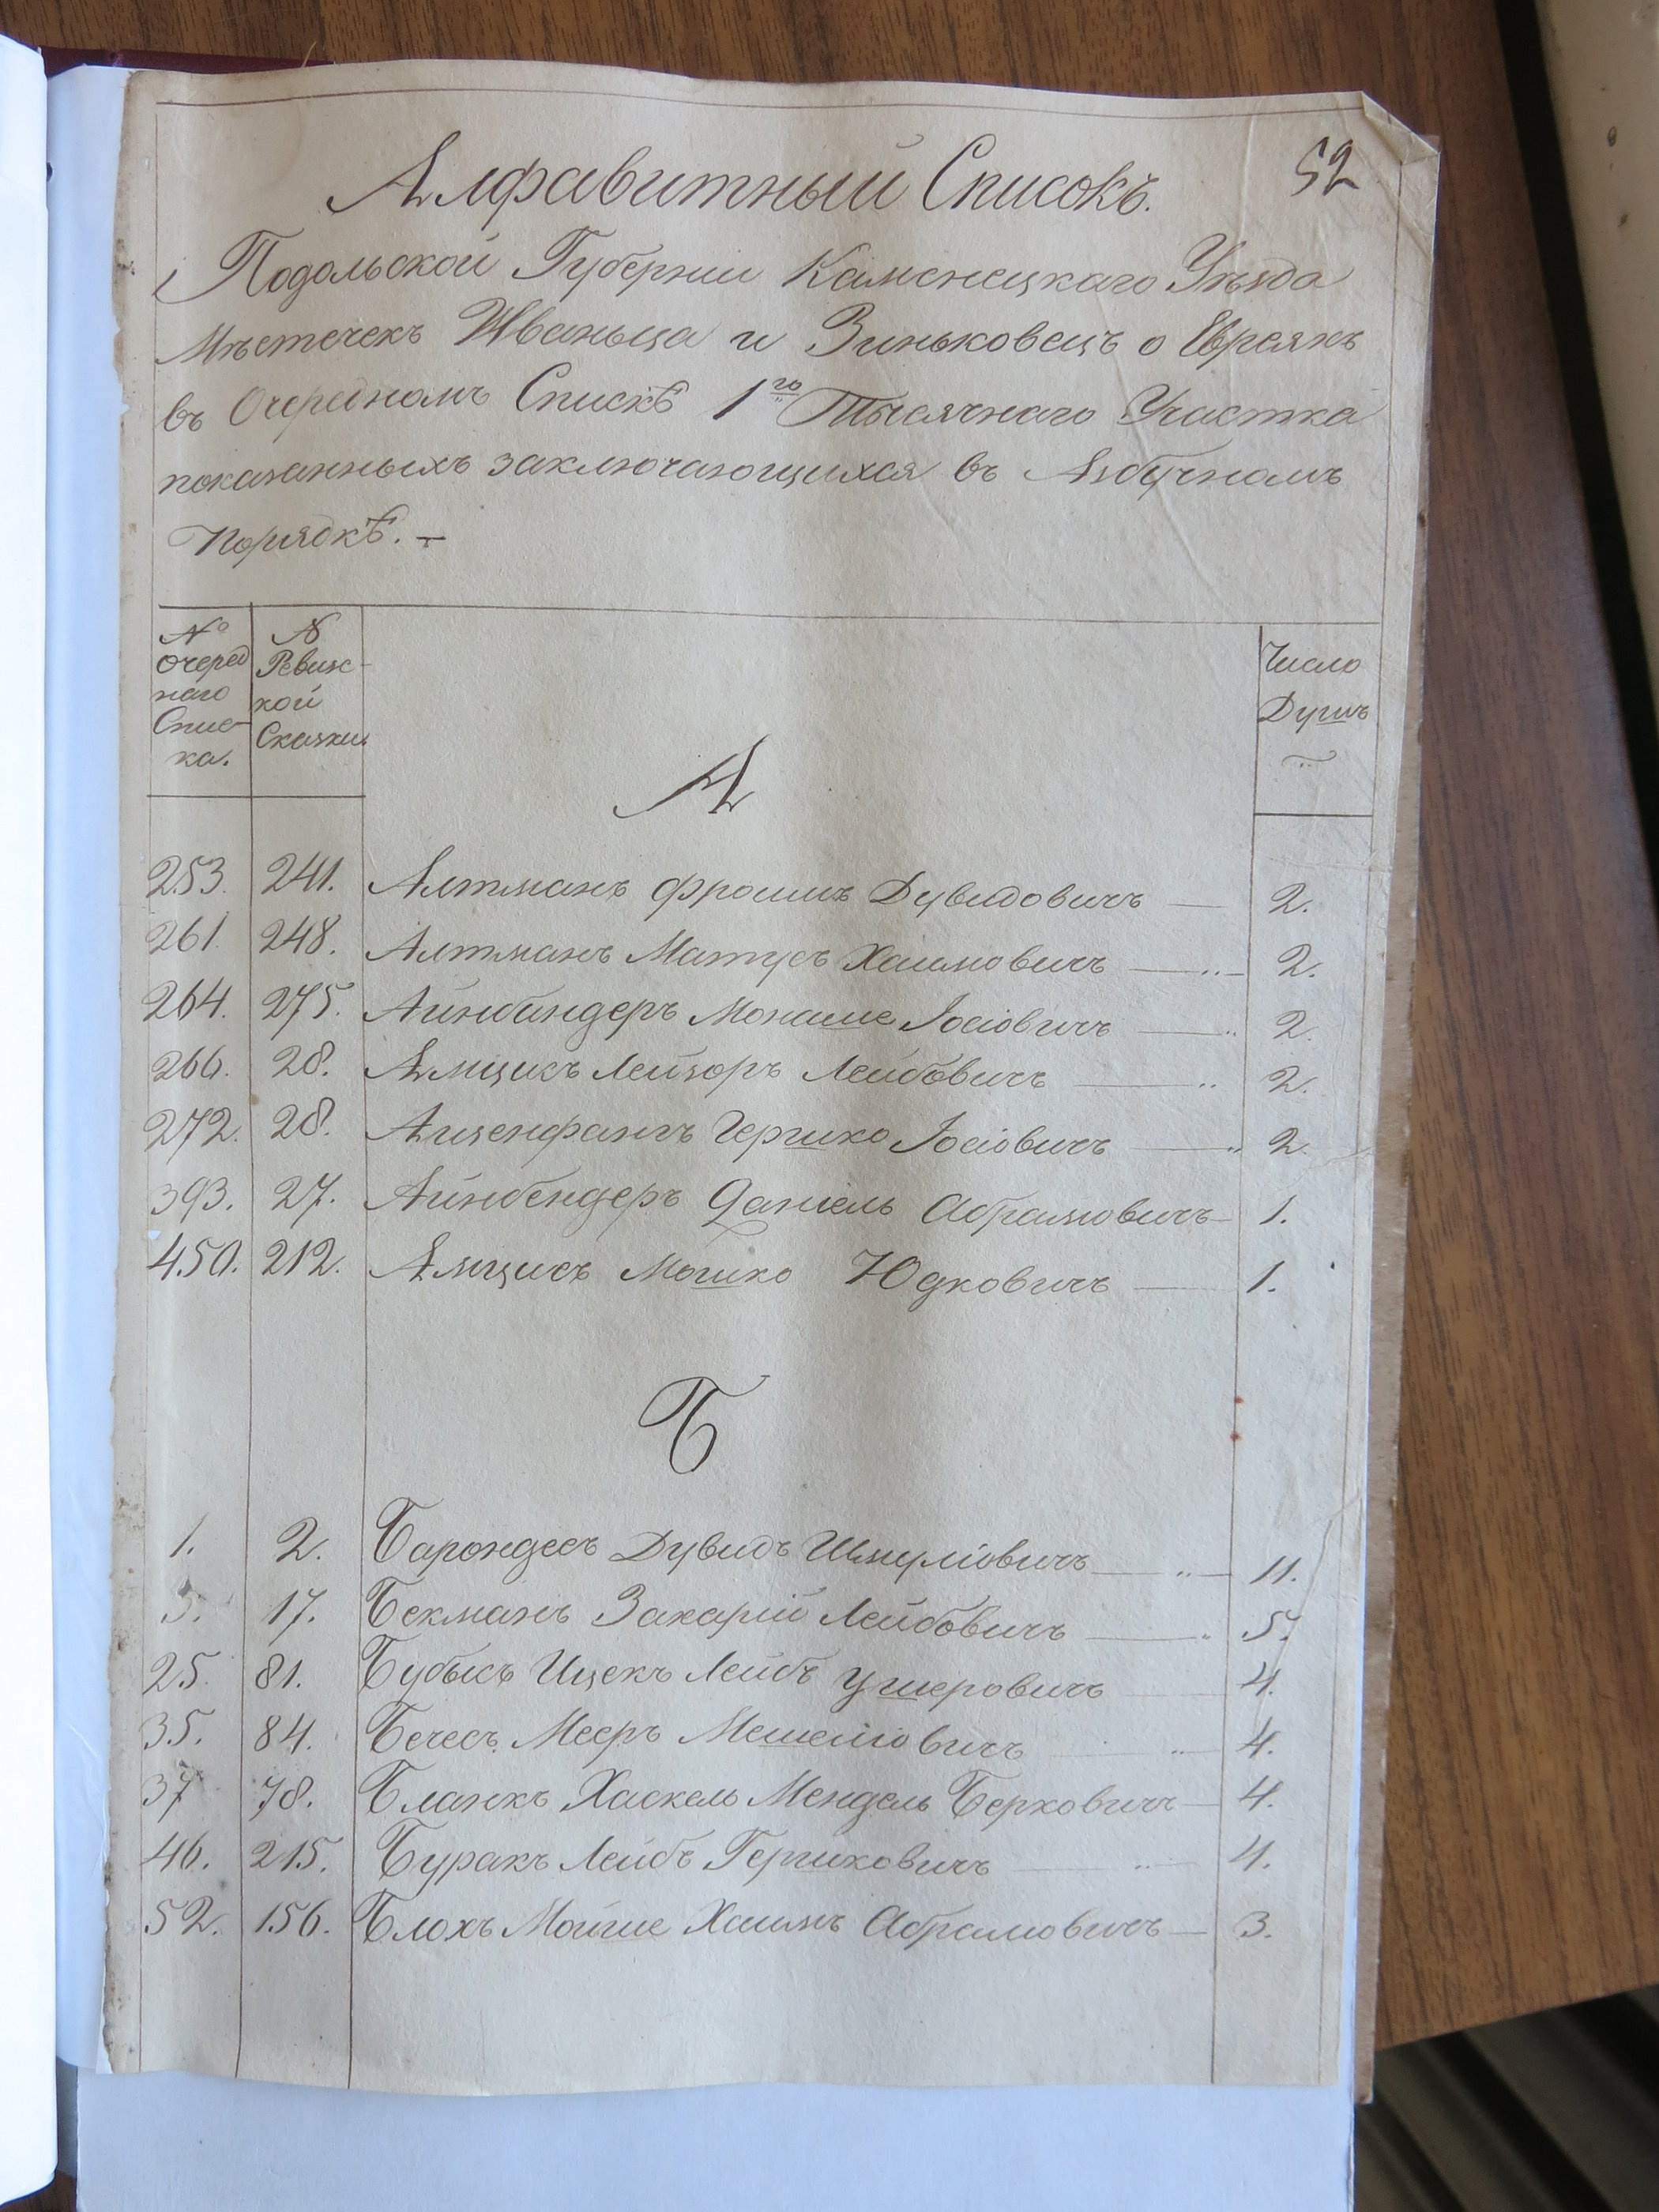 52
Алфавитный Списокъ.
Подольской Губерніи Каменецкаго Уѣзда
Мѣстечекъ Жваньца и Зиньковецъ о Евреяхъ
въ Очередномъ Спискѣ 1го Тысячнаго Участка
показанныхъ заключающихся въ Азбучномъ
Порядкѣ. —
№ Очеред наго Спис- ка.
№ Ревизс- кой Сказки.
Число Душъ
А
253. 241. Алтманъ Фроимъ Дувидовичъ — 2.
261. 248. Алтманъ Матусъ Хаимовичъ — 2.
264. 275. Айнбиндеръ Монаше Іосіовичъ — 2.
266. 28. Амцисъ Лейзоръ Лейбовичъ — 2.
272. 28. Аценфангъ Гершко Іосіовичъ — 2.
393. 27. Айнбендеръ Даніель Абрамовичъ — 1.
450. 212. Амцисъ Мошко Юдковичъ — 1.
Б
1. 2. Барондесъ Дувидъ Шмуліовичъ — 11.
5. 17. Бекманъ Захарій Лейбовичъ — 5.
25. 81. Бубысъ Ицекъ Лейбъ Ушеровичъ 4.
35. 84. Бечесъ Мееръ Мешеліовичъ — 4.
37 78. Бланкъ Хаскель Мендель Берковичъ — 4.
46. 215. Буракъ Лейбъ Гершковичъ — 4.
52. 156. Блохъ Мойше Хаимъ Абрамовичъ — 3.